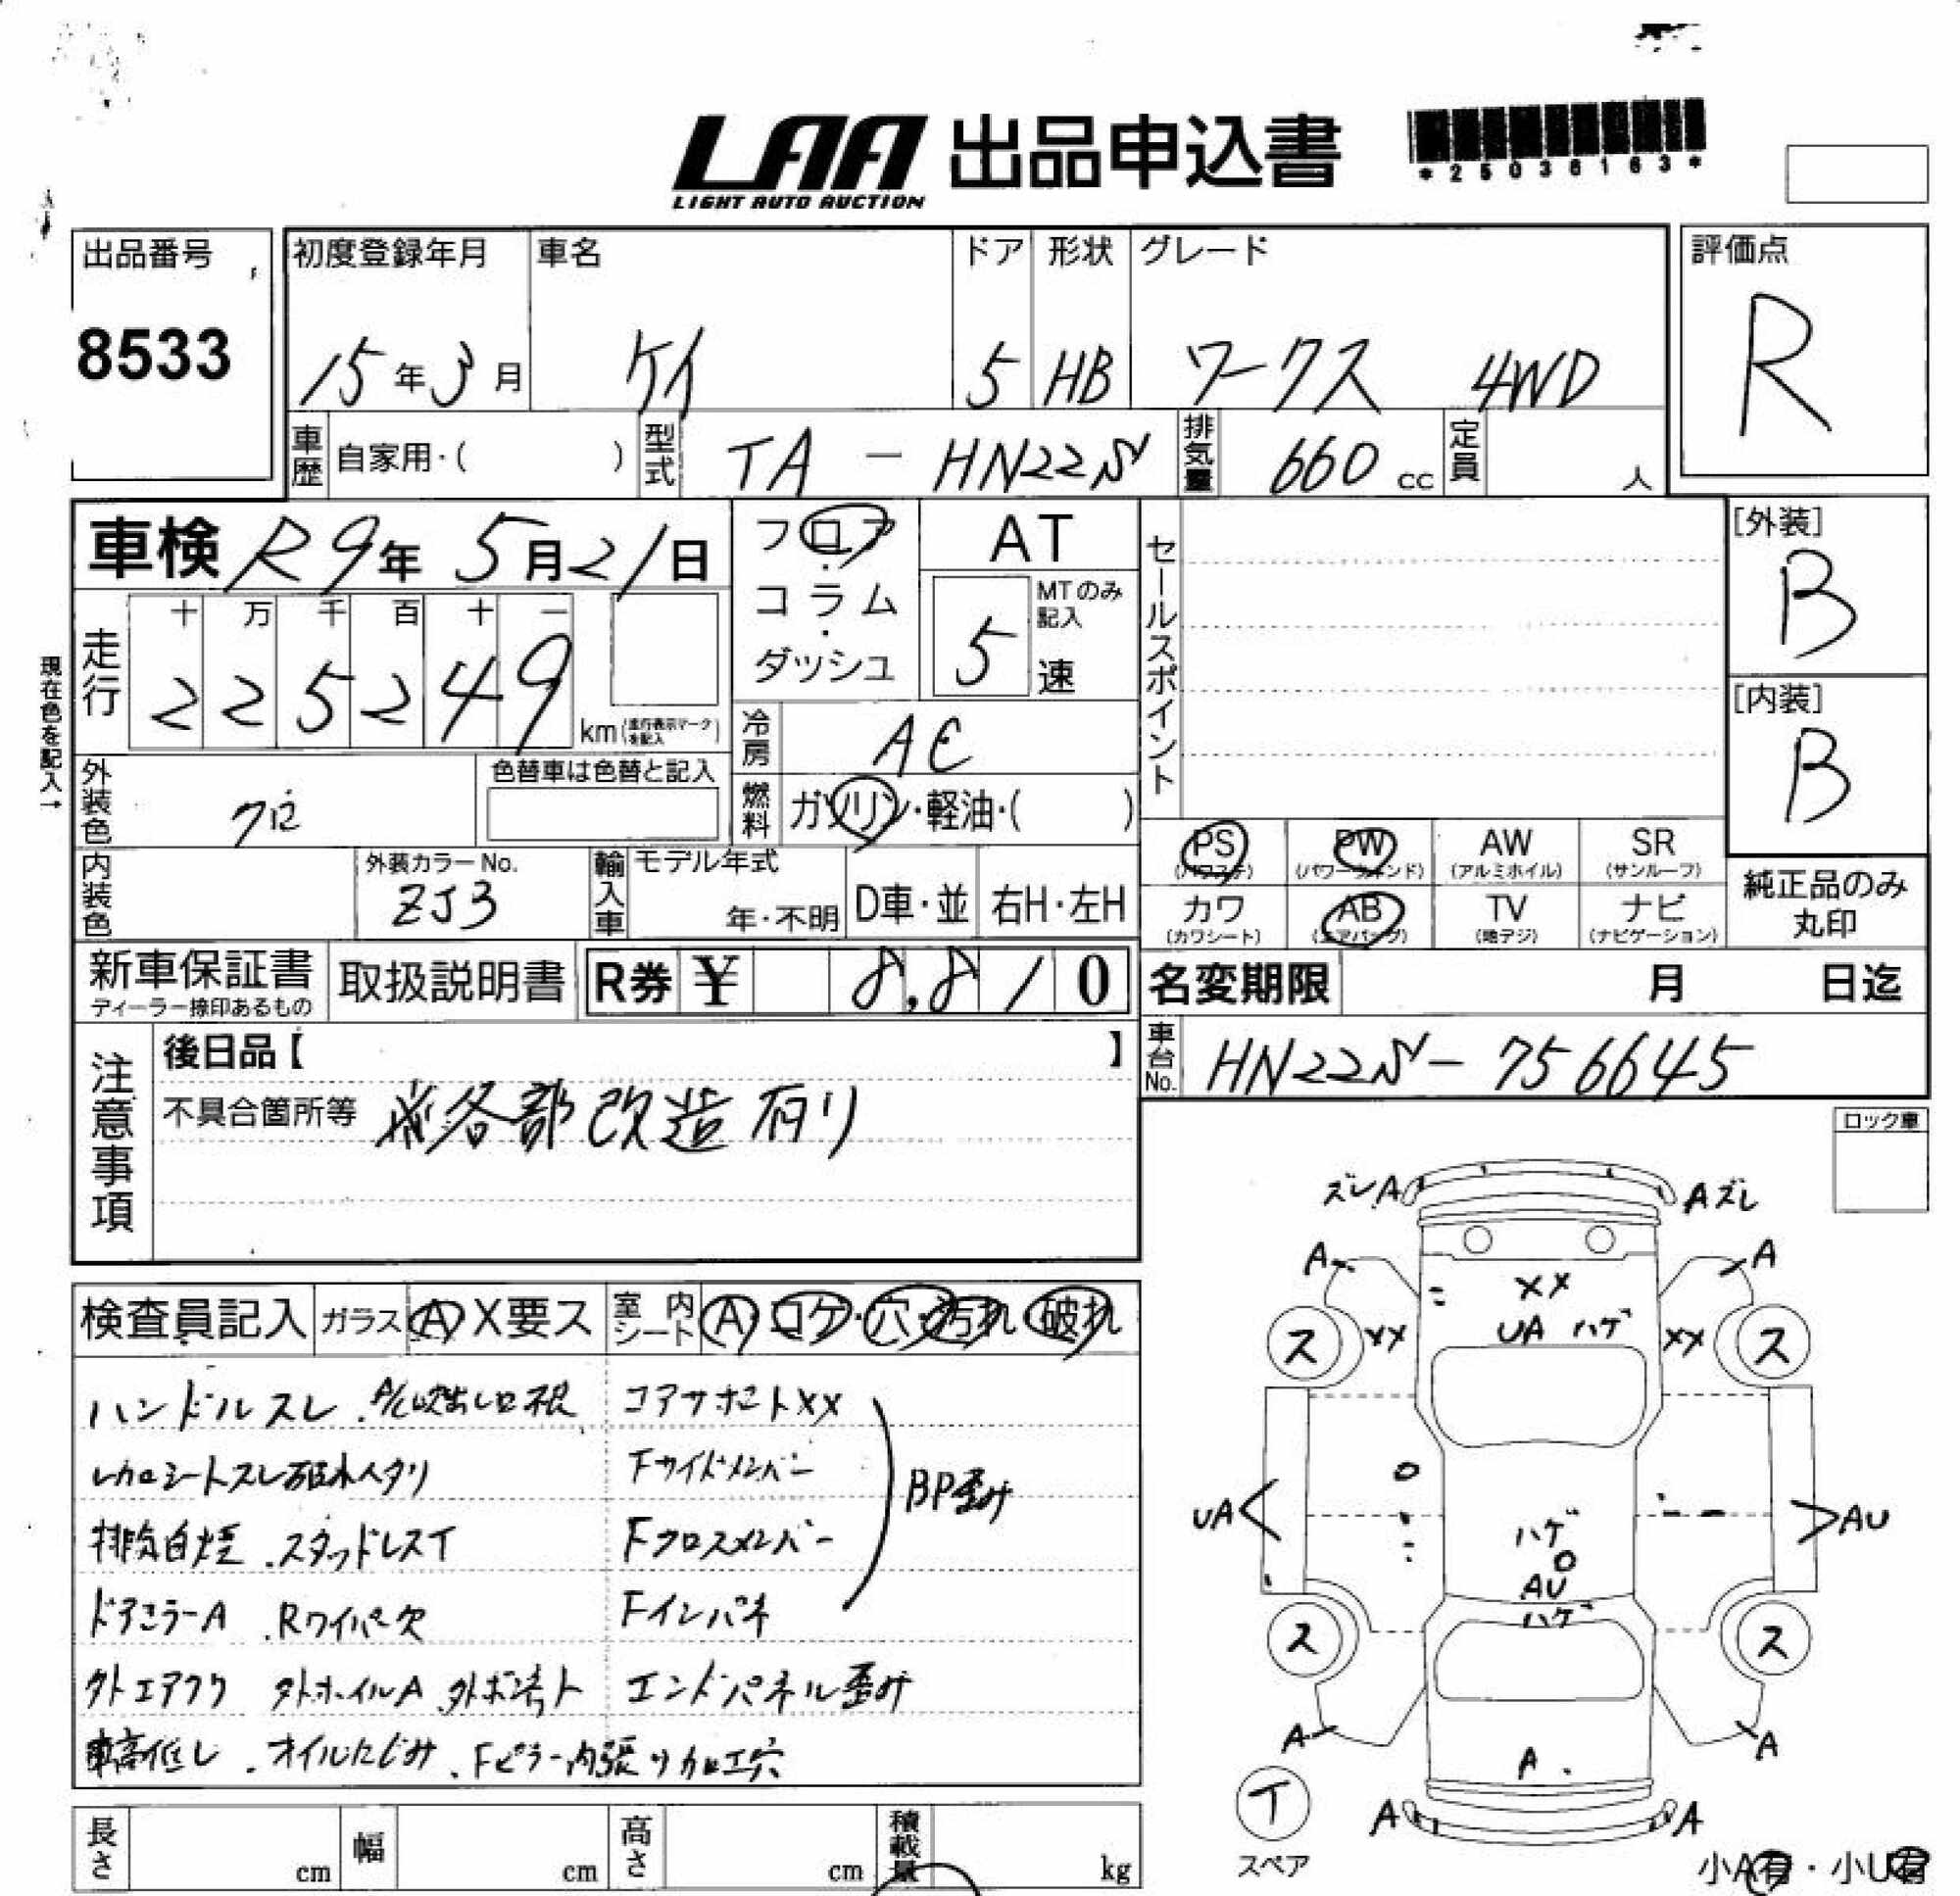 LAA 出品申込書
LIGHT AUTO AUCTION
*25036163*
出品番号
8533
初度登録年月 車名 ドア 形状 グレード
15年3月 ケイ 5 HB ワークス 4WD
評価点
R
車歴 自家用・( ) 型式 TA-HN22S 排気量 660cc 定員 人
車検 R9年5月21日
フロア・コラム・ダッシュ
AT
MTのみ記入
5速
セールスポイント
[外装]
B
[内装]
B
現在色を記入→
走行 十万千百十一
225249 km(走行表示マークを記入)
冷房 AC
外装色 クロ
色替車は色替と記入
燃料 ガソリン・軽油・( )
PS (パワステ) PW (パワーウィンド) AW (アルミホイル) SR (サンルーフ)
カワ (カワシート) AB (エアバッグ) TV (地デジ) ナビ (ナビゲーション)
純正品のみ丸印
内装色
外装カラーNo.
ZJ3
輸入車 モデル年式
年・不明 D車・並 右H・左H
新車保証書 取扱説明書 R券 ¥ 8,810
ディーラー捺印あるもの
名変期限 月 日迄
車台No. HN22S-756645
注意事項
後日品【 】
不具合箇所等 ※各部改造有り
ロック車
検査員記入 ガラス A X要ス 室内シート A・コゲ・穴・汚れ・破れ
ハンドルスレ .A/C吹出し口不良 コアサポートXX
レカロシートスレ破れヘタリ Fサイドメンバー
BP歪み
排気白煙 .スタッドレスT Fクロスメンバー
ドアミラーA .Rワイパー欠 Fインパネ
外エアクリ 外ホイルA 外ボンネット エンドパネル歪み
車高低し .オイルにじみ .Fピラー内張り加工穴
ズレA Aズレ
A A
XX
UA ハゲ
ス XX XX ス
UA AU
ハゲ
AU
ハゲ
ス ス
A A
A
T
スペア
A A
小A有・小U有
長さ cm 幅 cm 高さ cm 積載量 kg